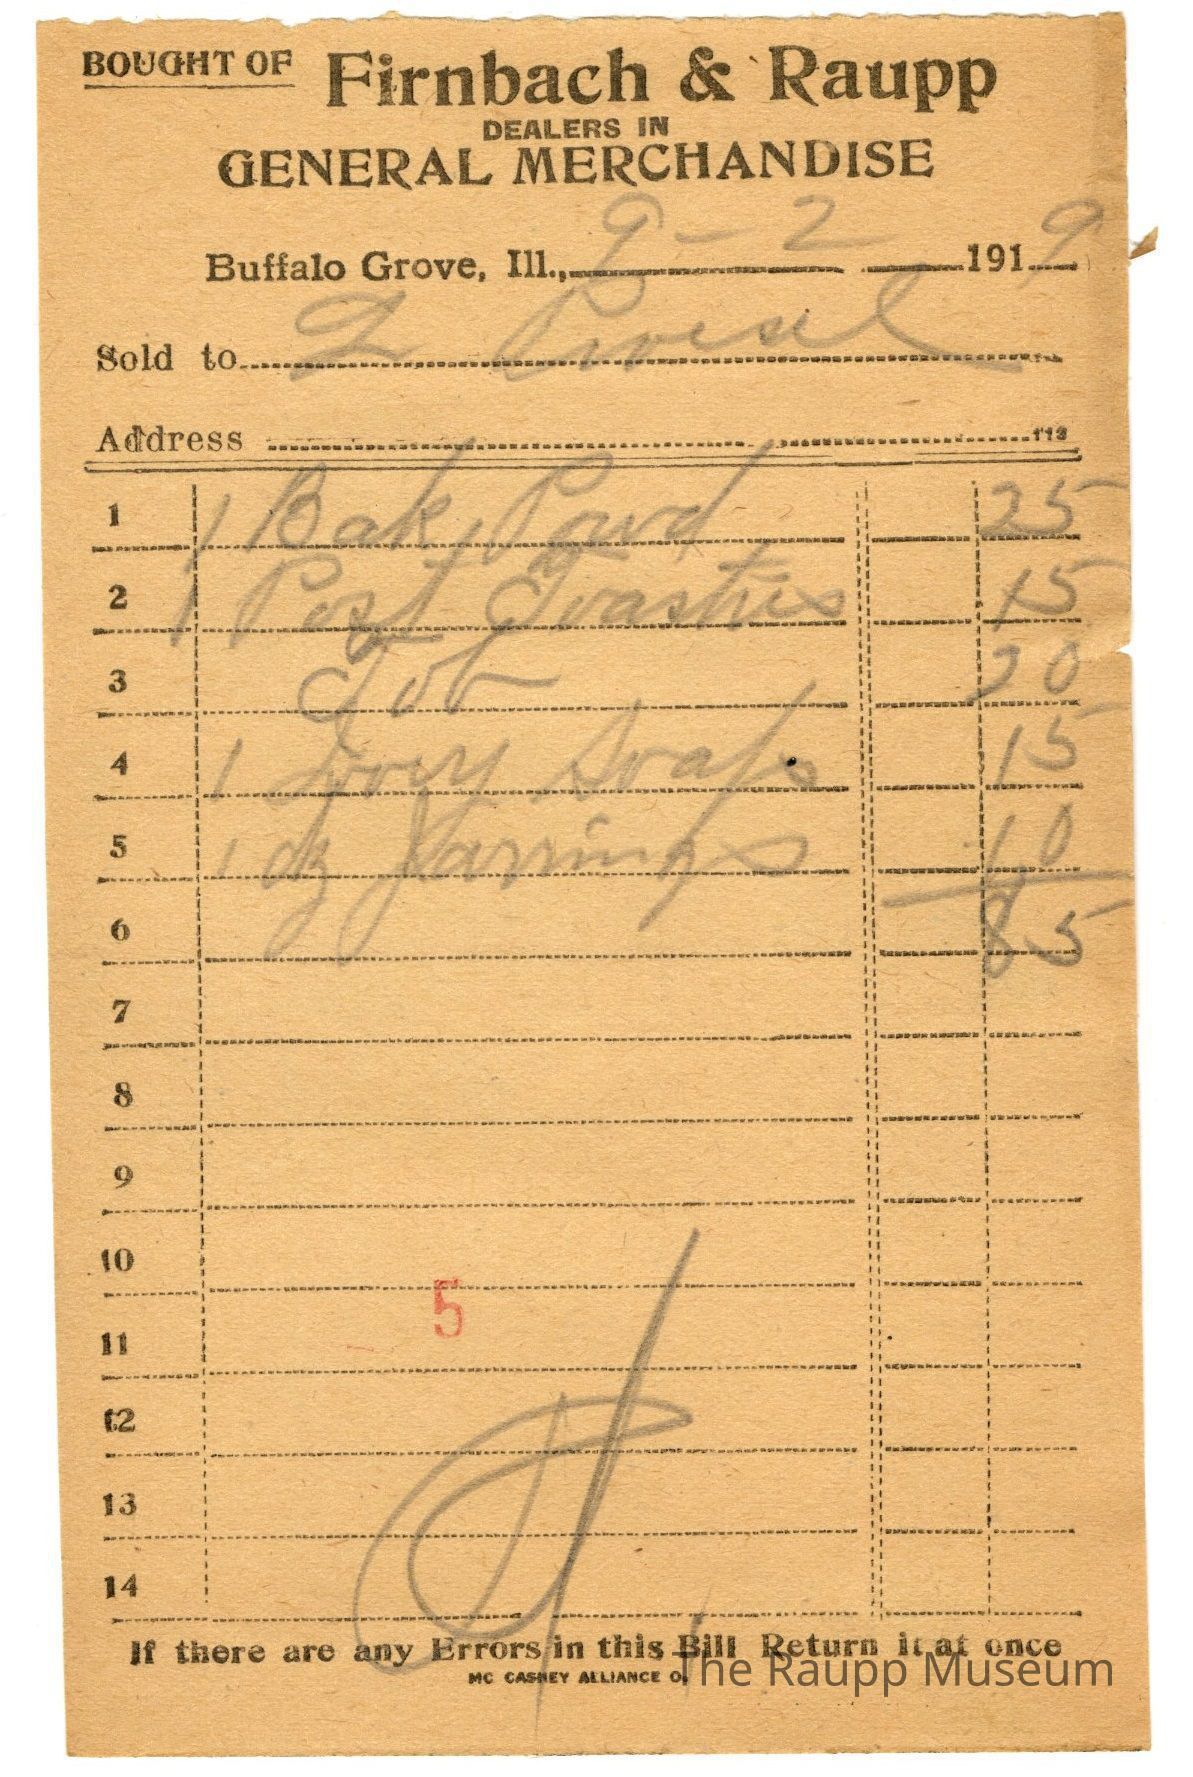 BOUGHT OF Firnbach & Raupp
DEALERS IN
GENERAL MERCHANDISE
Buffalo Grove, Ill., 9-2 1919
Sold to
Address 113
1 1 Bak. Powd 25
2 1 Post Toasties 15
3 Tob 20
4 1 Ivory Soap 15
5 1 dz Jar rings 10
6 85
7
8
9
10
5
11
12
13
14
If there are any Errors in this Bill Return it at once
MC CASKEY ALLIANCE O.
The Raupp Museum